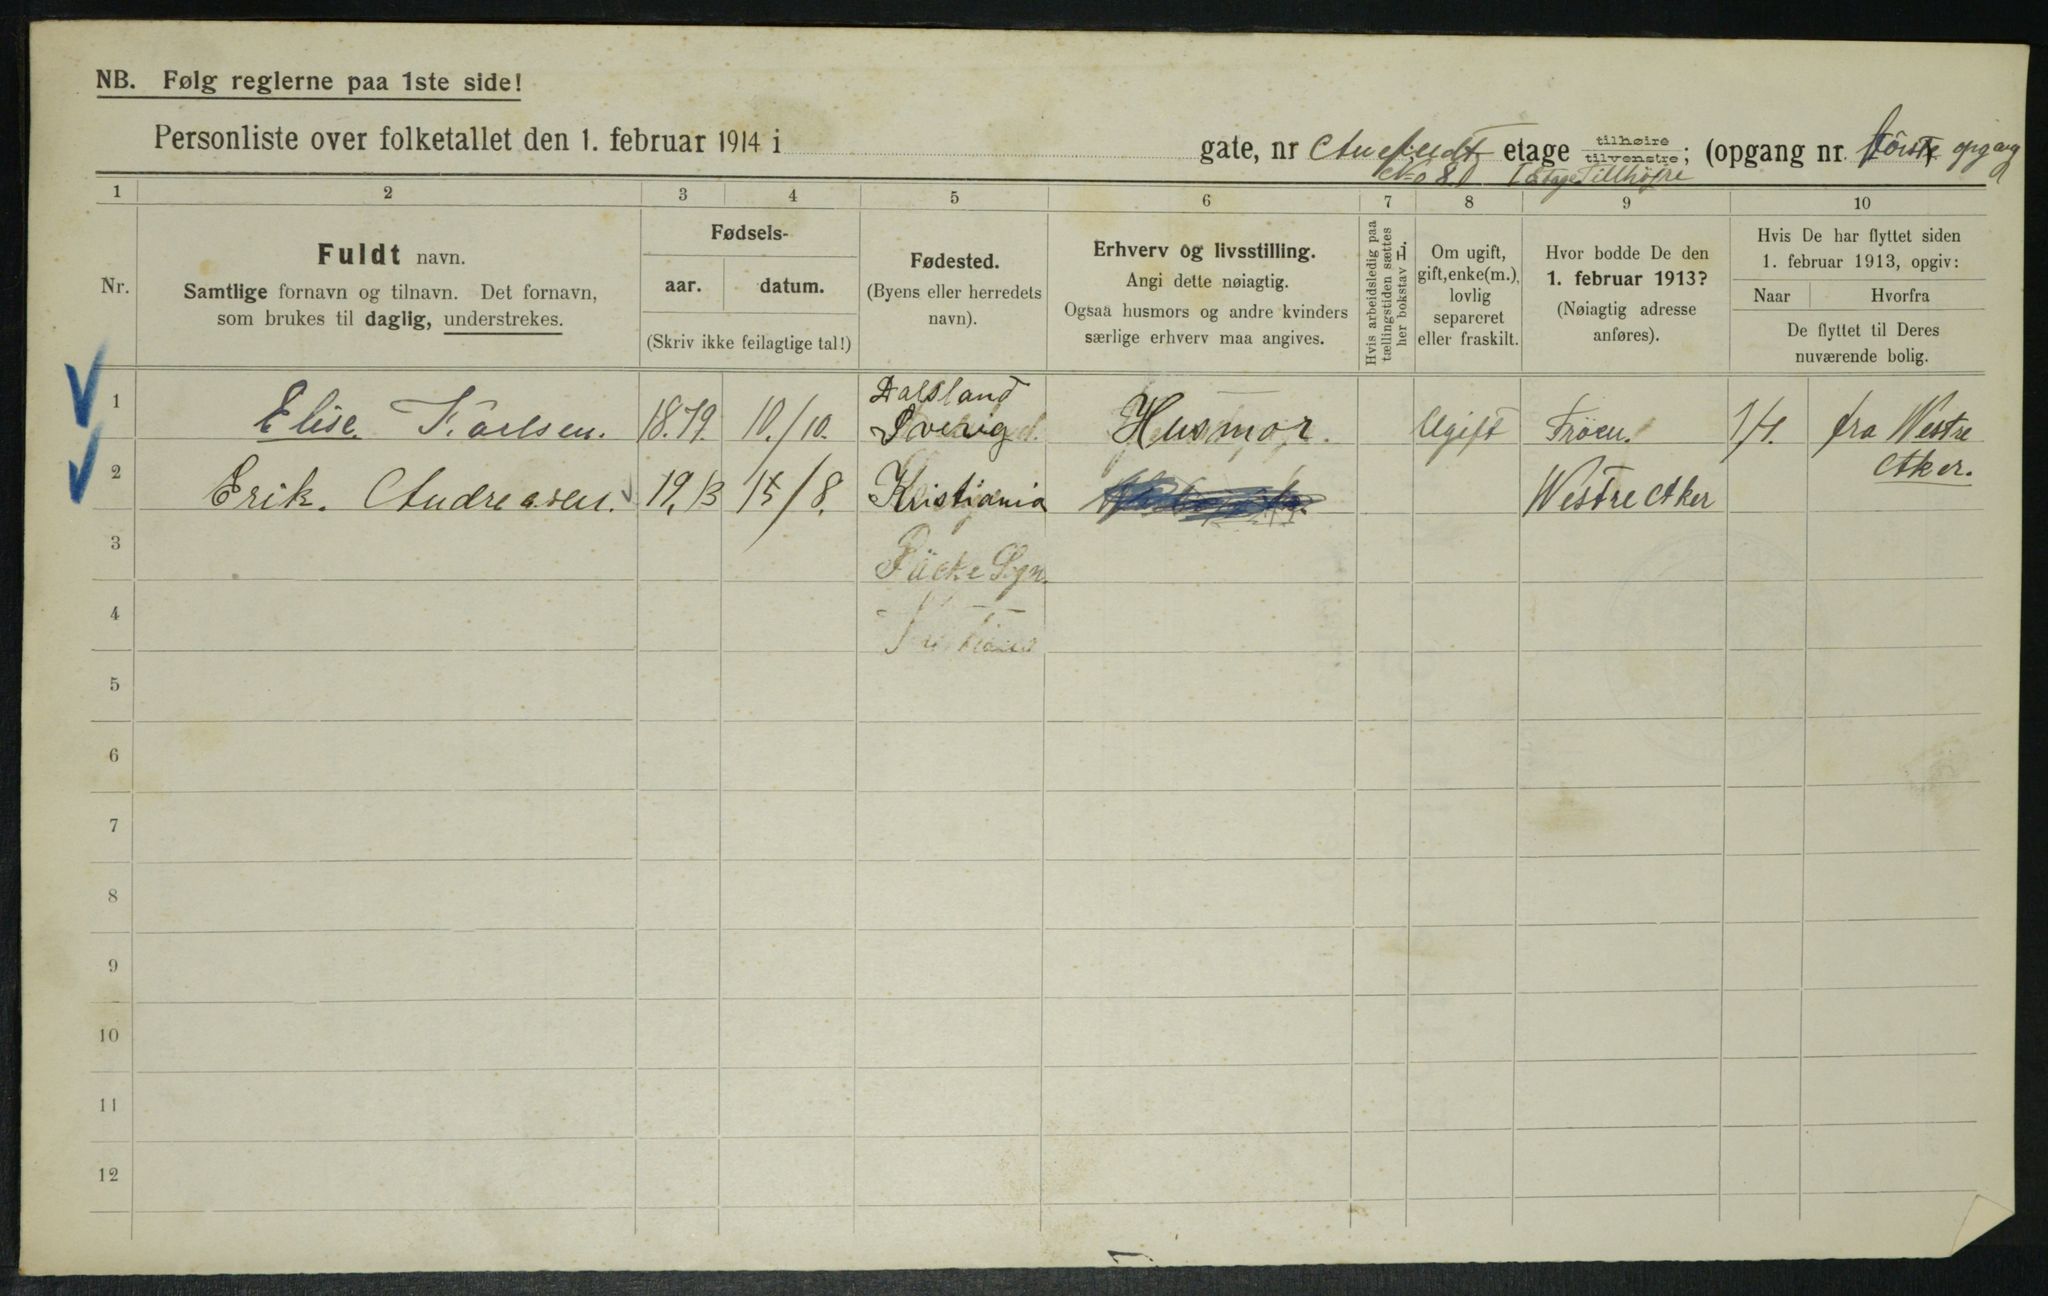 NB. Følg reglerne paa 1ste side!
Personliste over folketallet den 1. februar 1914 i gate, nr etage tilhøire tilvenstre; (opgang nr. förste opgang
No 8. I Etage Tillhöjre
1 2 3 4 5 6 7 8 9 10
Nr.
Fuldt navn.
Samtlige fornavn og tilnavn. Det fornavn,
som brukes til daglig, understrekes.
Fødsels-
aar. datum.
(Skriv ikke feilagtige tal!)
Fødested.
(Byens eller herredets
navn).
Erhverv og livsstilling.
Angi dette nøiagtig.
Ogsaa husmors og andre kvinders
særlige erhverv maa angives.
Hvis arbeidsledig paa
tællingstiden sættes
her bokstav L
Om ugift,
gift, enke(m.),
lovlig
separeret
eller fraskilt.
Hvor bodde De den
1. februar 1913?
(Nøiagtig adresse
anføres).
Hvis De har flyttet siden
1. februar 1913, opgiv:
Naar Hvorfra
De flyttet til Deres
nuværende bolig.
1 Elise. Karlsen. 18.79. 10./10. Dalsland
Sverig Husmor. Ugift Fröen. 1/4. fra Westre
Aker.
2 Erik. Andreasen. 19.13 15/8. Kristiania Westre Aker
3
4
5
6
7
8
9
10
11
12